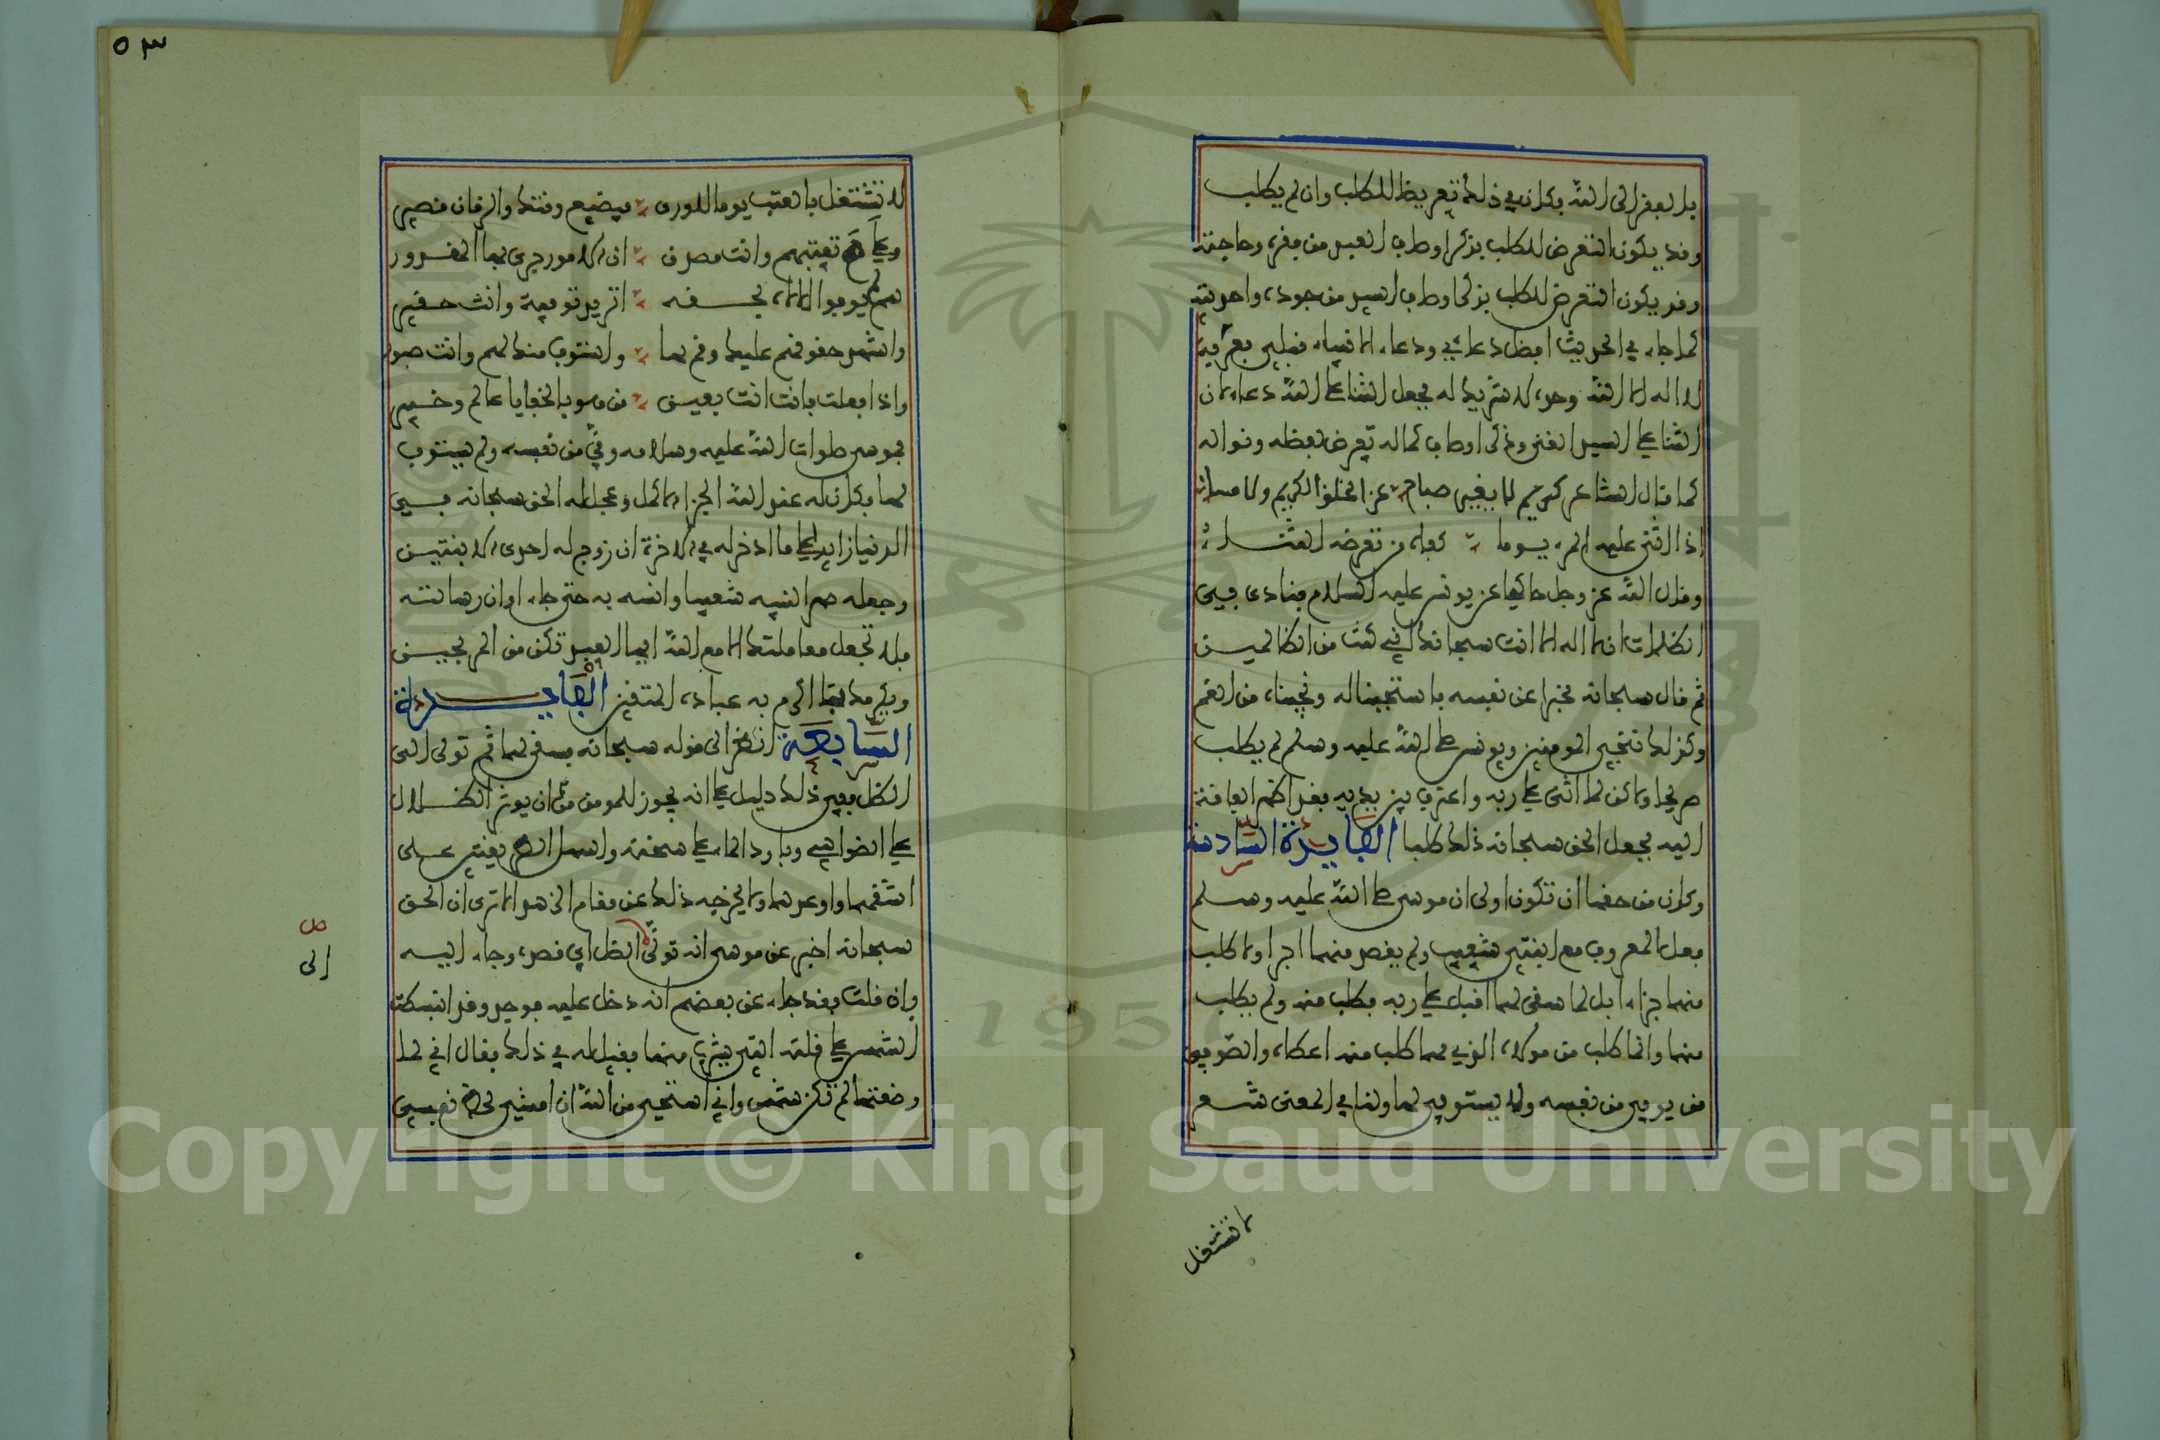 بل الفقر الى الله فكان في ذلك تعريضا للطلب وان لم يطلب
وقد يكون التعرض للطلب بذكر اوصاف العبد من فقره وحاجته
وقد يكون التعرض للطلب بذكر اوصاف السيد من جوده واحديته
كما جاء في الحديث افضل دعائي ودعاء الانبياء قبلي بعرفة
لا اله الا الله وحده لا شريك له فجعل الثنا على الله دعاء لان
الثنا على السيد الغني وذكر اوصاف كماله تعرض لفضله ونواله
كما قال الشاعر كريم لا يغيره صباح عن الخلق الكريم ولا مساء
اذا اثنى عليه المرء يوما كفاه من تعرضه الثناء
وقال الله عز وجل حاكيا عن يونس عليه السلام فنادى في
الظلمات ان لا اله الا انت سبحانك اني كنت من الظالمين
ثم قال سبحانه مخبرا عن نفسه فاستجبنا له ونجيناه من الغم
وكذلك ننجي المومنين ويونس صلى الله عليه وسلم لم يطلب
صريحا ولاكن لما اثنى على ربه واعترف بين يديه فقد اظهر الفاقة
اليه فجعل الحق سبحانه ذلك طلبا الفايدة السادسة
وكان من حقها ان تكون اولى ان موسى صلى الله عليه وسلم
فعل المعروف مع ابنتي شعيب ولم يقصد منهما اجرا ولا طلب
منهما جزاء بل لما سقى لهما اقبل على ربه فطلب منه ولم يطلب
منهما وانما طلب من مولاه الذي مهما طلب منه اعطاه والصوفي
من يوفي من نفسه ولا يستوفي لها ولنا في المعنى شعر
لا تشتغل
لا تشتغل بالعتب يوما للورى فيضيع وقتك والزمان قصير
وعلام تعتبهم وانت مصدق ان الامور جرى بها المقدور
هم لم يوفوا للالاه بحقه اتريد توفية وانت حقير
واشهد حقوقهم عليك وقم بها واستوف منك لهم وانت صبور
واذا فعلت فانت انت بعين من هو بالخفايا عالم وخبير
فموسى صلوات الله عليه وسلامه وفى من نفسه ولم يستوف
لها فكان له عند الله الجزاء الاكمل وعجل له الحق سبحانه في
الدنيا زايدا على ما ادخر له في الاخرة ان زوج له احدى الابنتين
وجعله صهر النبيه شعيبا وانسه به حتى جاء اوان رسالته
فلا تجعل معاملتك الا مع الله ايها العبد تكن من المربحين
ويكرمك بما اكرم به عباده المتقين الفايدة
السابعة انظر الى قوله سبحانه فسقى لهما ثم تولى الى
الظل ففي ذلك دليل على انه يجوز للمومن ان يوثر الظلال
على الضواحي وبارد الماء على سخنه واسهل الطريقين على
اشقهما واوعرهما ولا يخرجه ذلك عن مقام الزهد الا ترى ان الحق
سبحانه اخبر عن موسى انه تولى الظل اي قصده وجاء اليه
ص
الى
وان قلت فقد جاء عن بعضهم انه دخل عليه فوجد وقد انبسطت
الشمس على قلته التي يشرب منها فقيل له في ذلك فقال اني لما
وضعتها لم تكن شمس واني استحيي من الله ان امشي لحظ نفسي